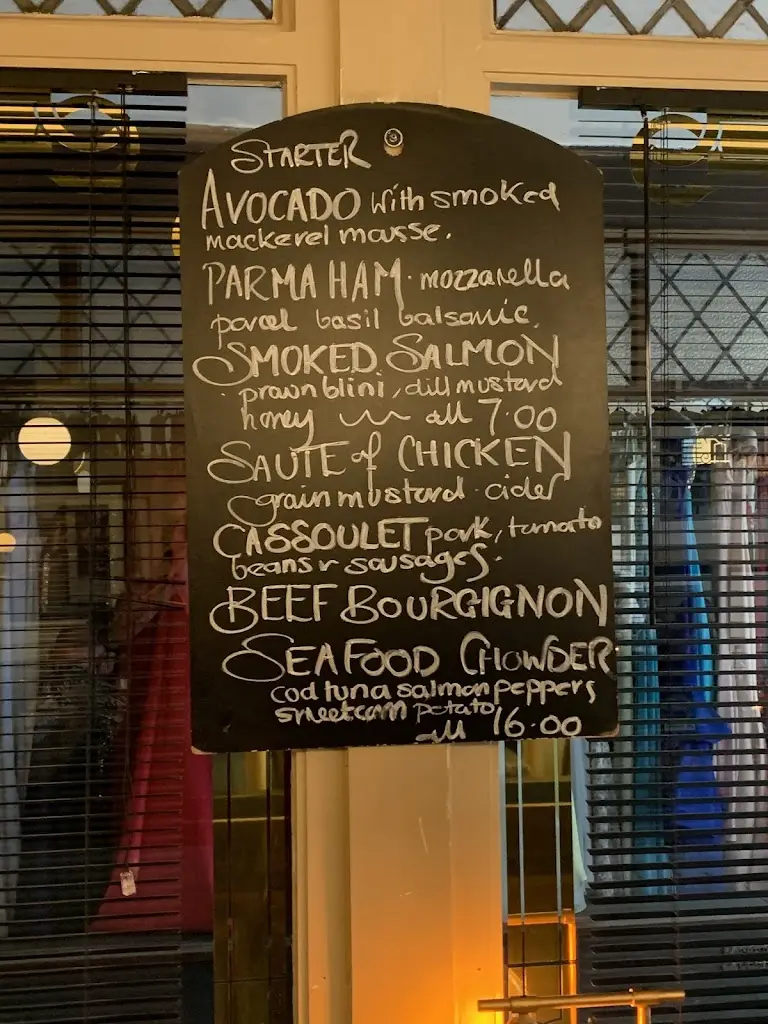 STARTER
AVOCADO with smoked
mackerel mousse.
PARMA HAM. mozzarella
parcel basil balsamic.
SMOKED SALMON
prawn blini, dill mustard
honey all 7.00
SAUTE of CHICKEN
grain mustard. cider
CASSOULET pork, tomato
beans & sausages.
BEEF BOURGIGNON
SEAFOOD CHOWDER
cod tuna salmon peppers
sweetcorn potato
all 16.00